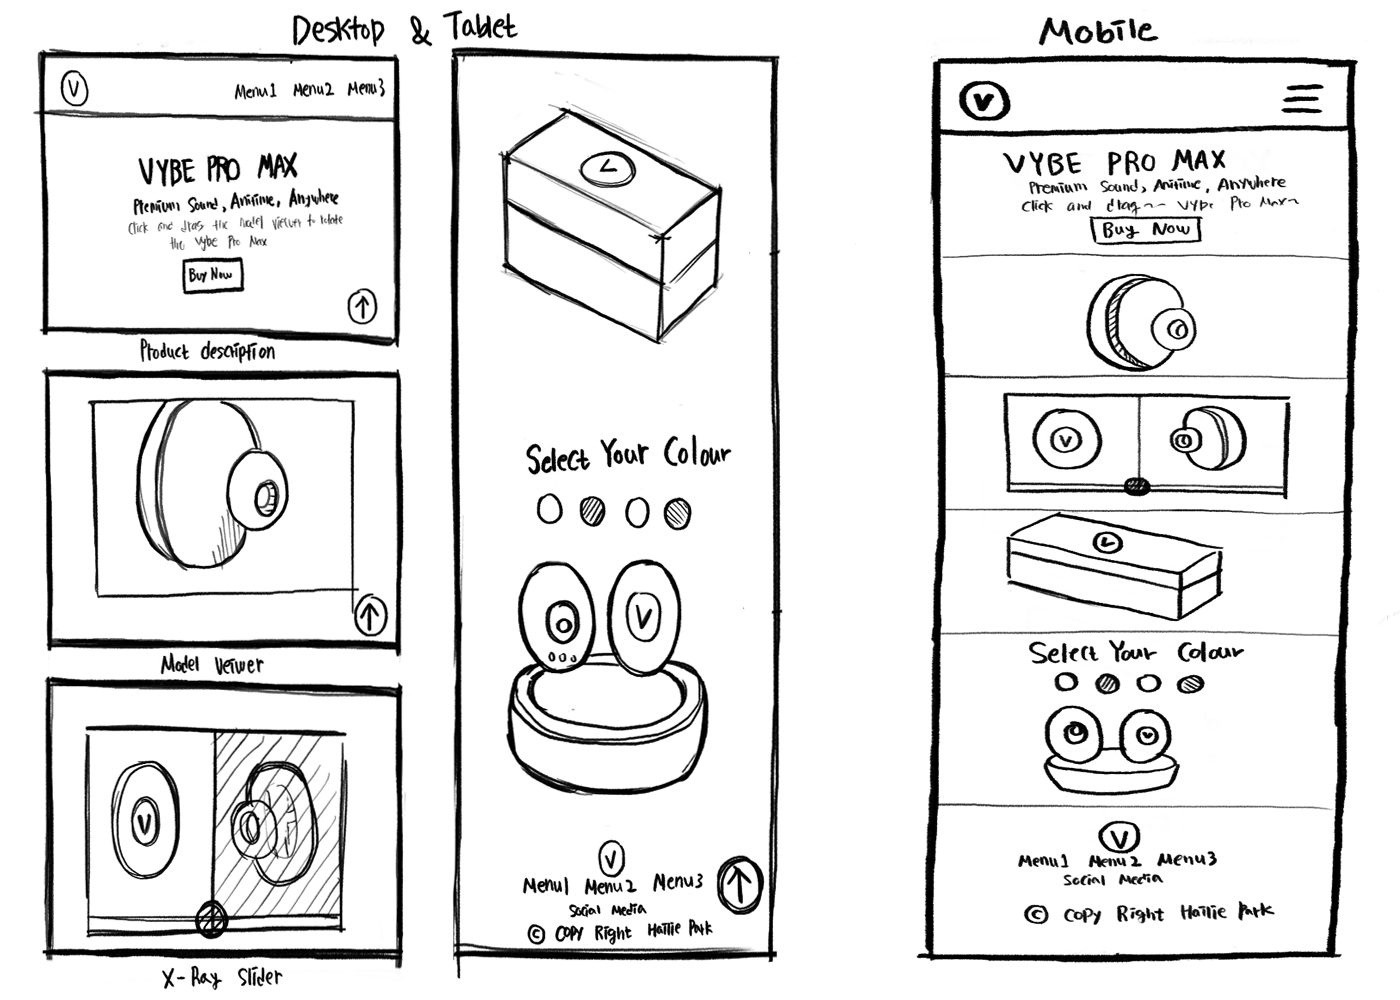 Desktop & Tablet
V
Menu1 Menu2 Menu3
VYBE PRO MAX
Premium Sound, Anitime, Anywhere
Click and drag the model viewer to rotate
the Vybe Pro Max
Buy Now
Product description
Model Veiwer
V
X-Ray Slider
Select Your Colour
V
V
Menu1 Menu2 Menu3
Social Media
© Copy Right Hailie Park
Mobile
V
VYBE PRO MAX
Premium Sound, Anitime, Anywhere
Click and drag~~ Vybe Pro Max~
Buy Now
V
Select Your Colour
V
V
Menu1 Menu2 Menu3
Social Media
© Copy Right Hailie Park